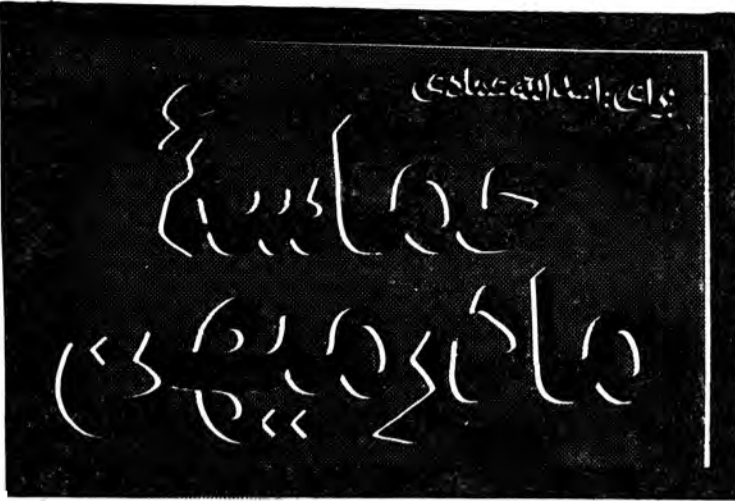 برای: اسدالله عمادی
حماسهٔ
مادرمیهن